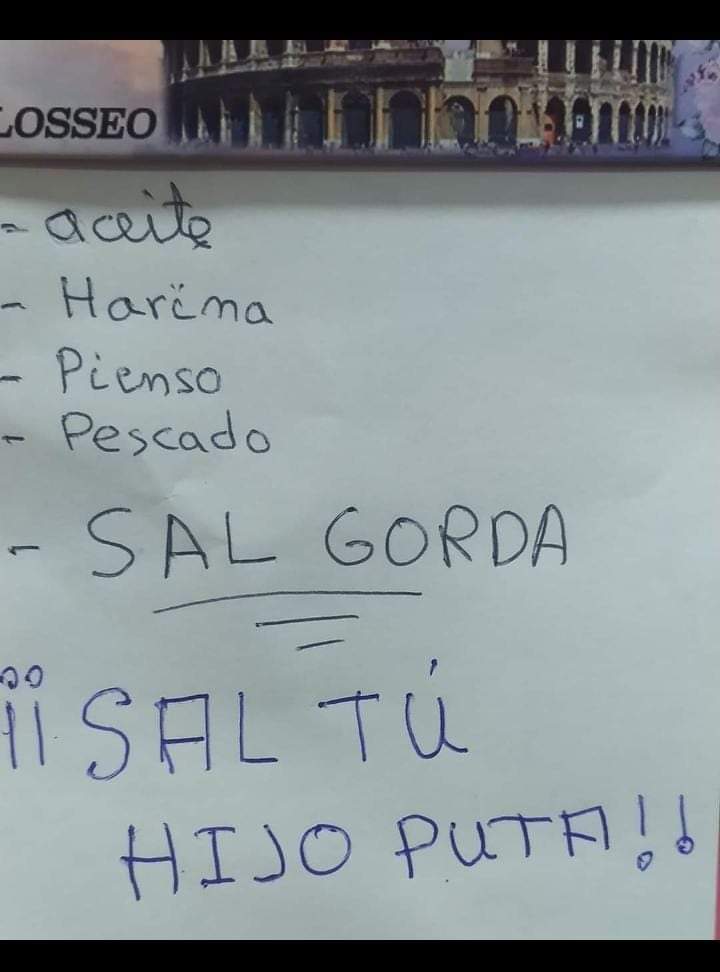 LOSSEO
- aceite
- Harina
- Pienso
- Pescado
- SAL GORDA
¡¡SAL TÚ
HIJO PUTA!!